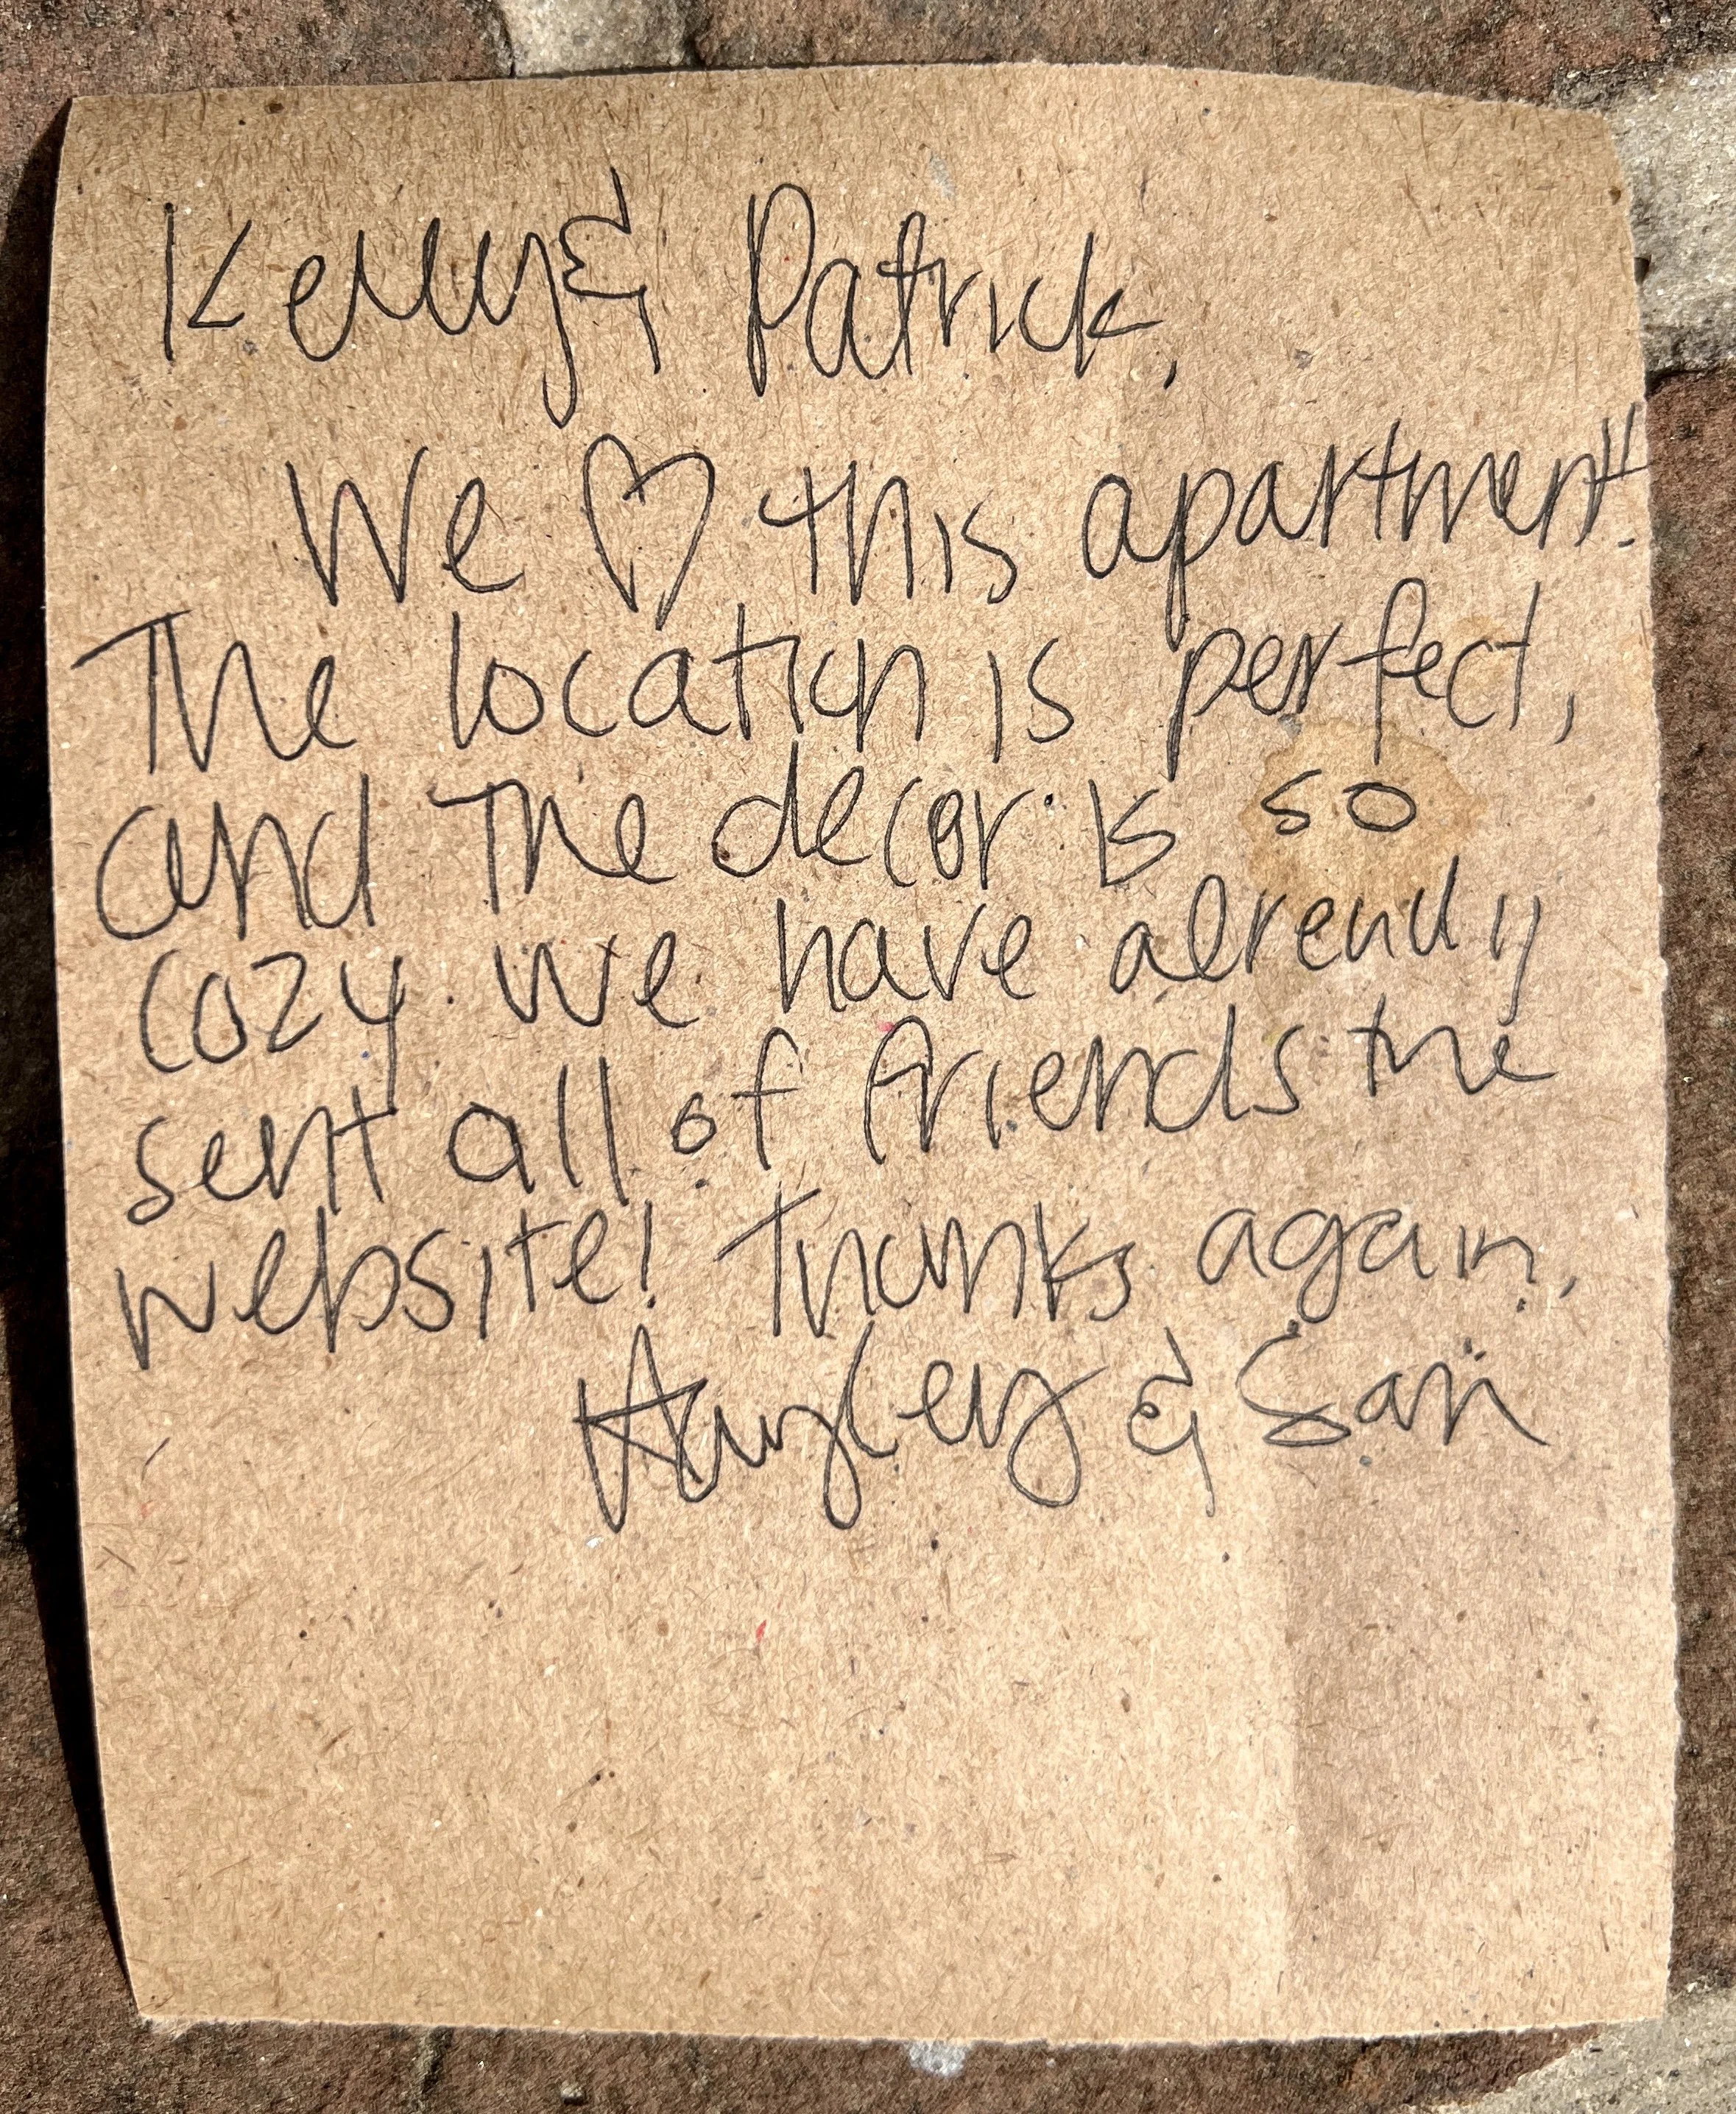 Kelly & Patrick,
We ♡ this apartment!
The location is perfect,
and the decor is so
cozy. We have already
sent all of friends the
website! Thanks again,
Hayley & San